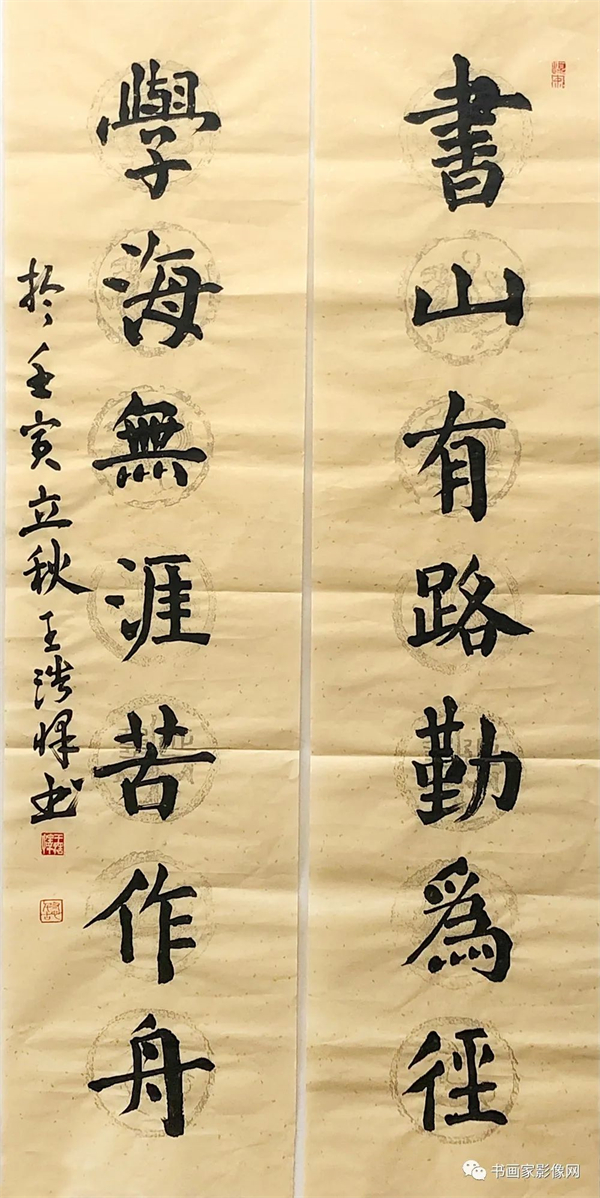 書山有路勤為徑
學海無涯苦作舟
於壬寅立秋王浩
书
书画家影像网